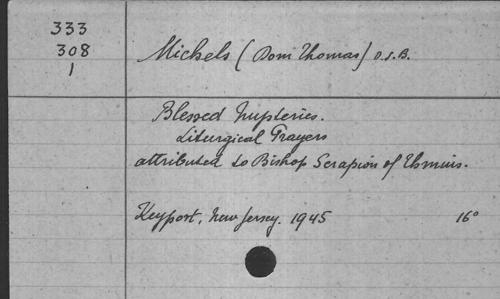 333
308
1
Michels (Dom Thomas) O.S.B.
Blessed Mysteries.
Liturgical Prayers
attributed to Bishop Serapion of Thmuis.
Keyport, New Jersey. 1945 16°